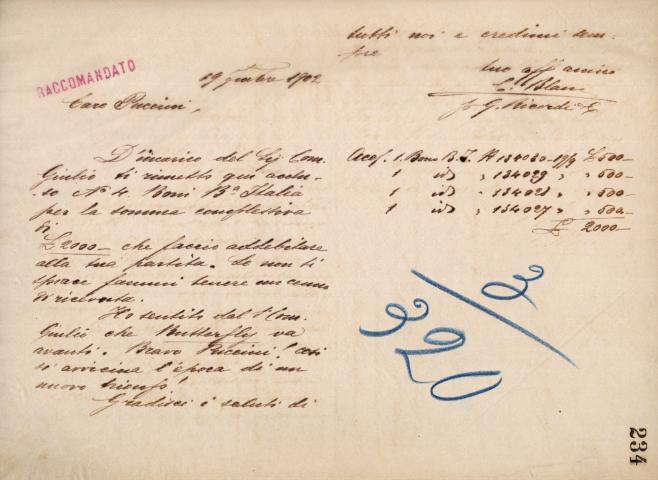 RACCOMANDATO
19 9mbre 1902
Caro Puccini,
D'incarico del Sig. Com.
Giulio ti rimetto qui acclu-
so No 4 Boni Ba Italia
per la somma complessiva
di
£ 2000 – che faccio addebitare
alla tua partita. Se non ti
spiace fammi tenere un cenno
di ricevuta.
Ho sentito dal Sr Com.
Giulio che Butterfly va
avanti. Bravo Puccini! così
si avvicina l'epoca di un
nuovo trionfo!
Gradisci i saluti di
tutti noi e credimi sem-
pre
tuo aff amico
C. Blanc
p G. Ricordi & C.
1. Buono B. I. N 134030 £ 500 –
1 id " 134029 " " 500 –
1 id " 134028 " " 500 –
1 id " 134027 " " 500 –
£ 2000 –
234